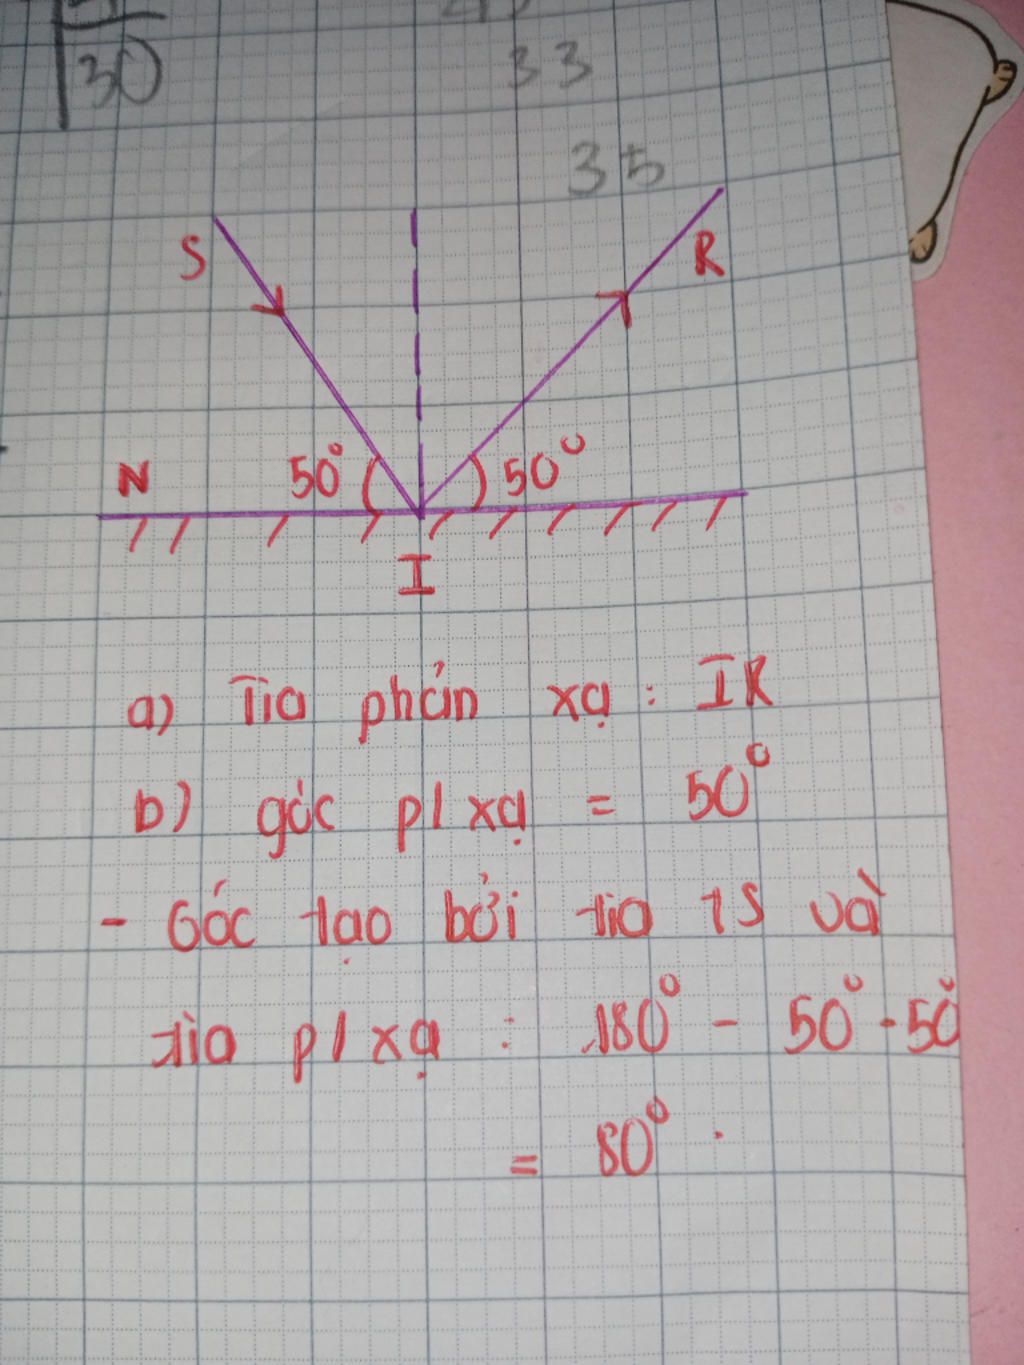 30
33
35
S
R
N
50°
50°
I
a) Tia phản xạ : IR
b) góc p/xạ = 50°
- Góc tạo bởi tia IS và
tia p/xạ : 180° - 50° - 50°
= 80°.